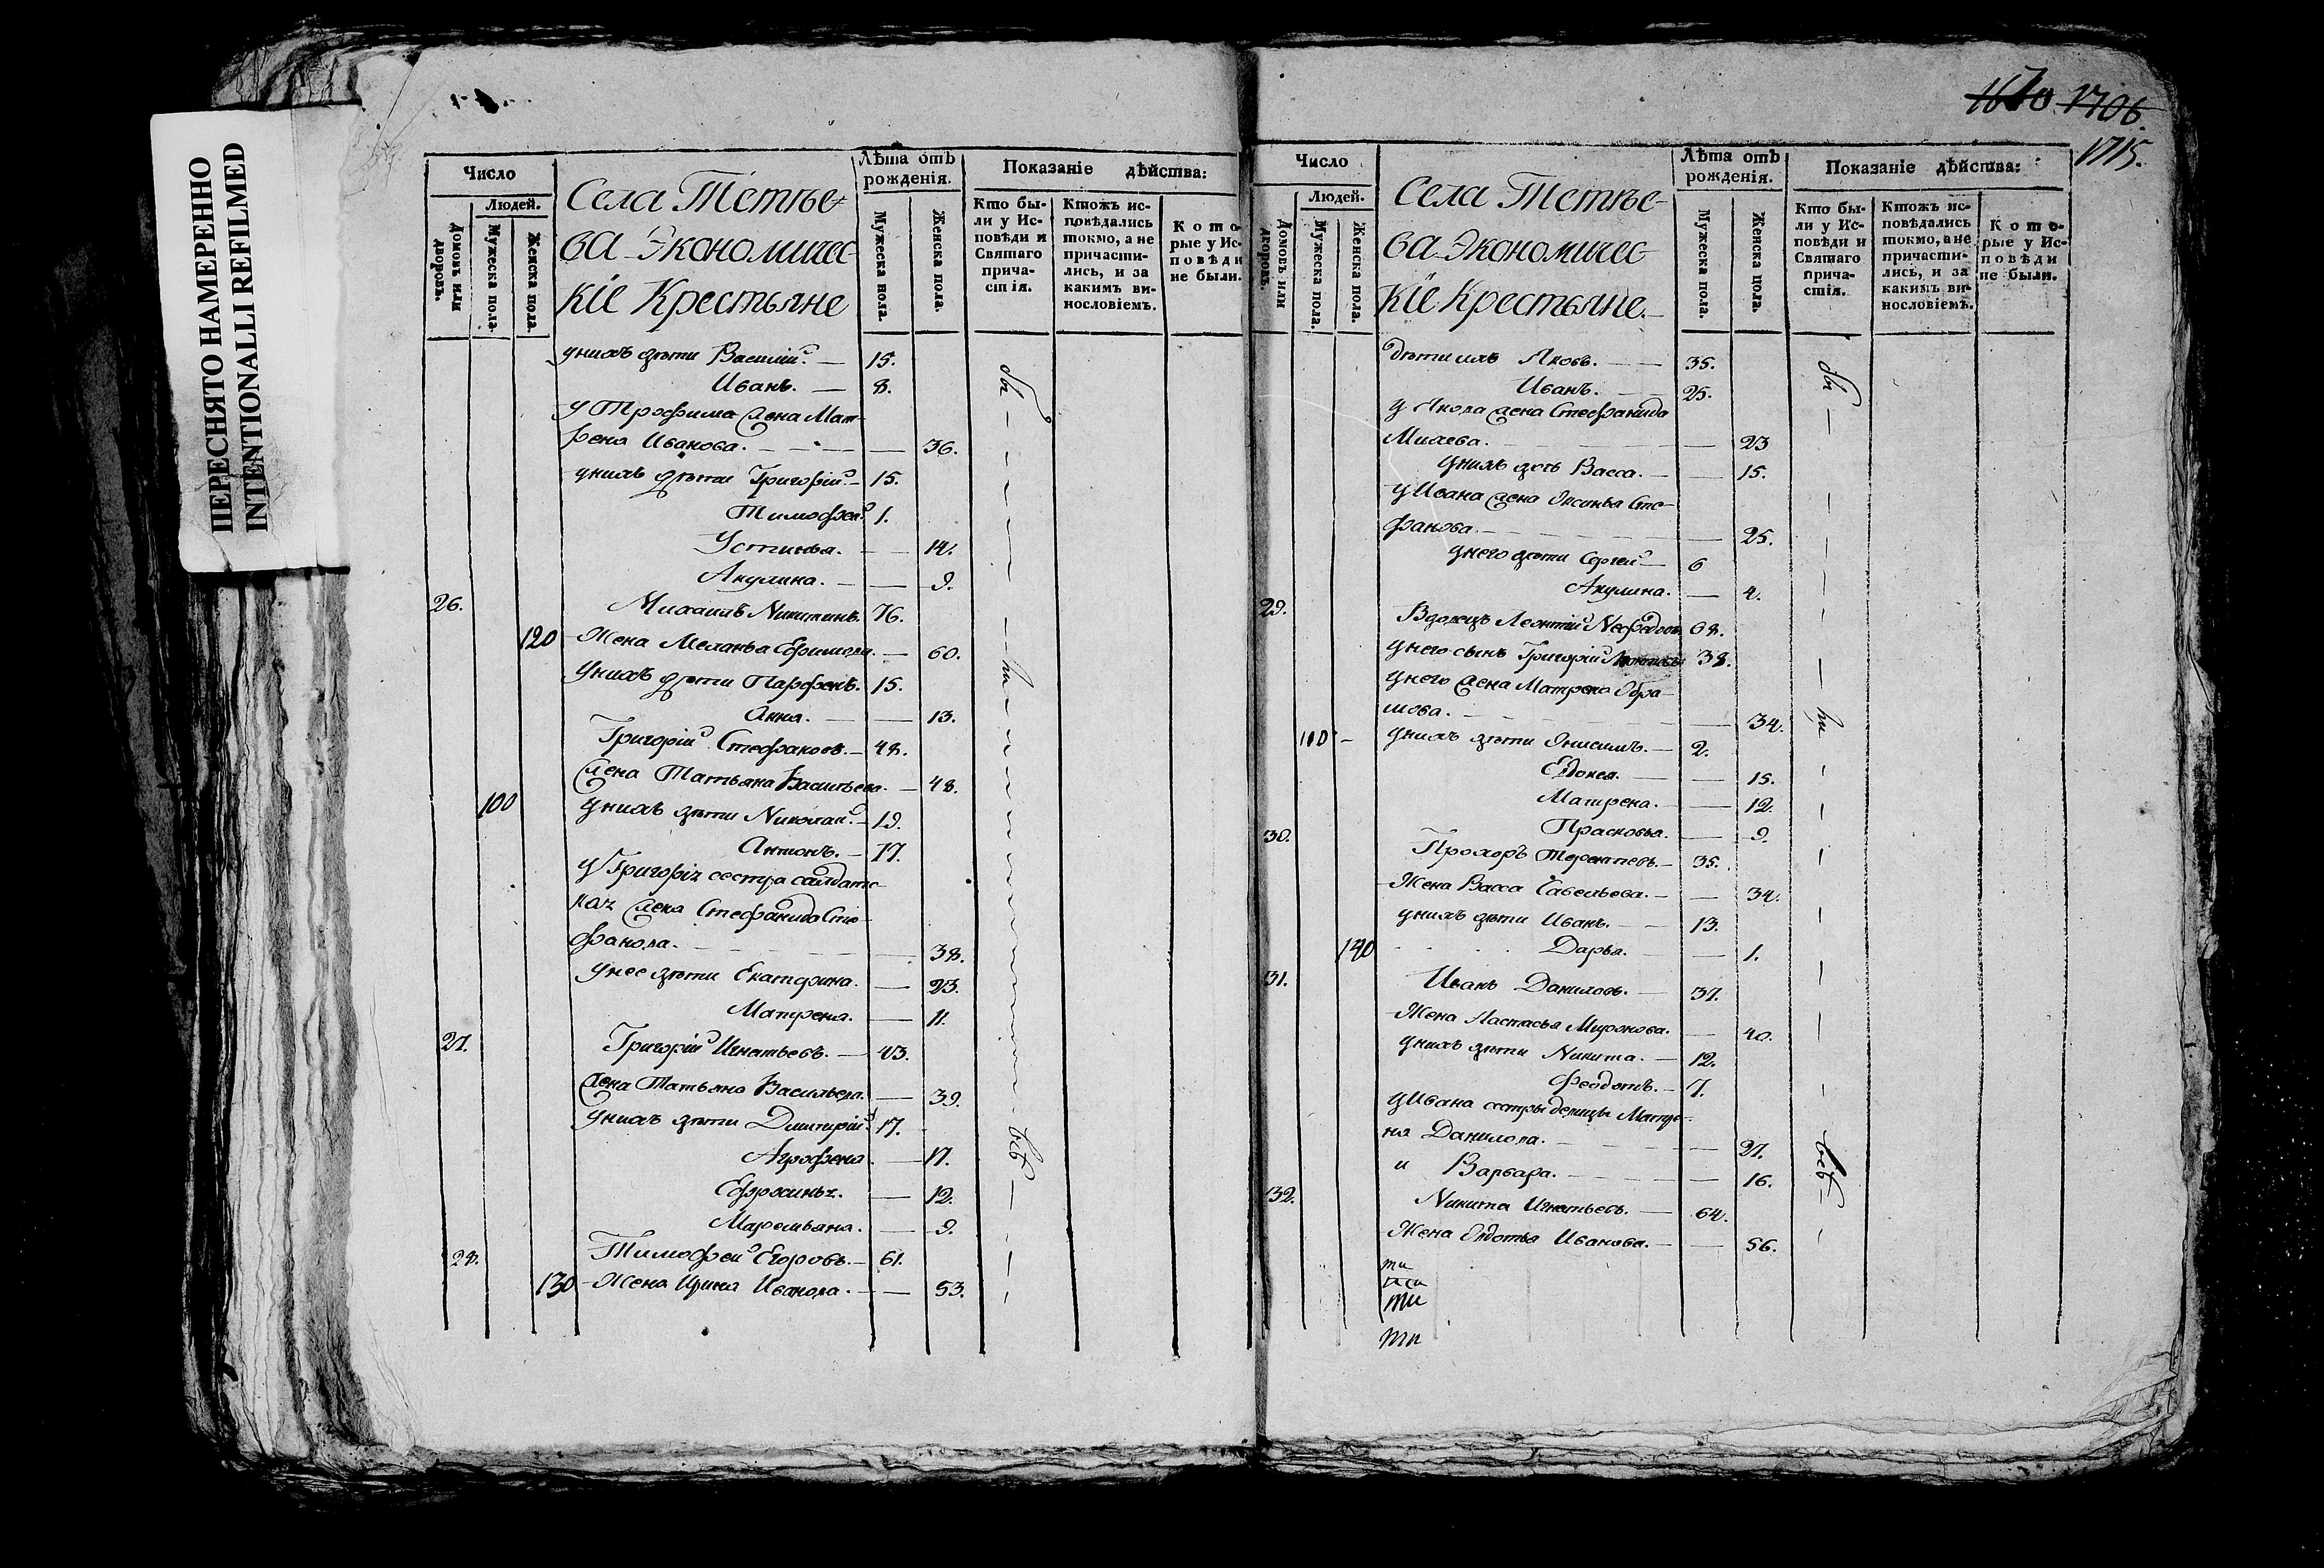 ПЕРЕСНЯТО НАМЕРЕННО
INTENTIONALLI REFILMED
Число
Людей.
Домовъ или дворовъ.
Мужеска пола.
Женска пола.
Села Тетѣе-
ва Экономичес-
кіе Крестьяне
Лѣта отъ
рожденія.
Мужеска пола.
Женска пола.
Показаніе дѣйства:
Кто бы-
ли у Ис-
повѣди и
Святаго
прича-
стія.
Ктожъ ис-
повѣдались
токмо, а не
причасти-
лись, и за
какимъ ви-
нословіемъ.
Кото-
рые у Ис-
повѣди
не были.
у нихъ дѣти Василій. — 15.
Иванъ. — 8.
у Трофима жена Мат-
рена Иванова. — 36.
у нихъ дѣти Григорій — 15.
Тимофей 1.
Устинья. — 14.
Акулина. — 9.
26. Михаилъ Никитинъ. 76.
120 Жена Меланья Ефимова. — 60.
у нихъ дѣти Парфенъ. 15.
Анна. — 13.
Григорій Стефановъ. — 48.
жена Татьяна Васильева. — 48.
100 у нихъ дѣти Николай. — 19.
Антонъ. — 17.
у Григорія сестра салдатс-
кая жена Стефанида Сте-
фанова. — 38.
у нее дѣти Екатерина. — 23.
Матрена. — 11.
27. Григорій Игнатьевъ. — 43.
жена Татьяна Васильева. — 39.
у нихъ дѣти Димитрій 17.
Агрофена. — 17.
Ефросинья. — 12.
Маремьяна. — 9.
28. Тимофей Егоровъ. — 61.
130 Жена Ирина Иванова. — 53.
бы
ли
всѣ
1670 1706.
1715.
Число
Людей.
Домовъ или дворовъ.
Мужеска пола.
Женска пола.
Села Тетѣе-
ва Экономичес-
кіе Крестьяне.
Лѣта отъ
рожденія.
Мужеска пола.
Женска пола.
Показаніе дѣйства:
Кто бы-
ли у Ис-
повѣди и
Святаго
прича-
стія.
Ктожъ ис-
повѣдались
токмо, а не
причасти-
лись, и за
какимъ ви-
нословіемъ.
Кото-
рые у Ис-
повѣди
не были.
дѣти ихъ Яковъ. — 35.
Иванъ. 25.
у Якова жена Стефанида
— 23
у нихъ дочь Васса. — 15.
у Ивана жена Оксинья Сте-
фанова. — 25.
у него дѣти Сергей — 6
Акулина. — 4.
29. Вдовецъ Леонтій Нефедовъ 68.
у него сынъ Григорій 38.
у него жена Матрена Обра-
мова. — 34.
110 у нихъ дѣти Онисимъ. — 2.
Евдокея. — 15.
Матрена. — 12.
Прасковья. — 9.
30. Прохоръ Терентьевъ. — 35.
Жена Васса Савельева. — 34.
у нихъ дѣти Иванъ. — 13.
140 Дарья. — 1.
31. Иванъ Даниловъ. — 37.
Жена Настасья Миронова. — 40.
у нихъ дѣти Никита. — 12.
Феодотъ. — 7.
у Ивана сестры девицы Матре-
на Данилова. — 27.
и Варвара. — 16.
32. Никита Игнатьевъ. — 64.
Жена Евдотья Иванова. — 56.
бы
ли
всѣ
ти
ти
ти